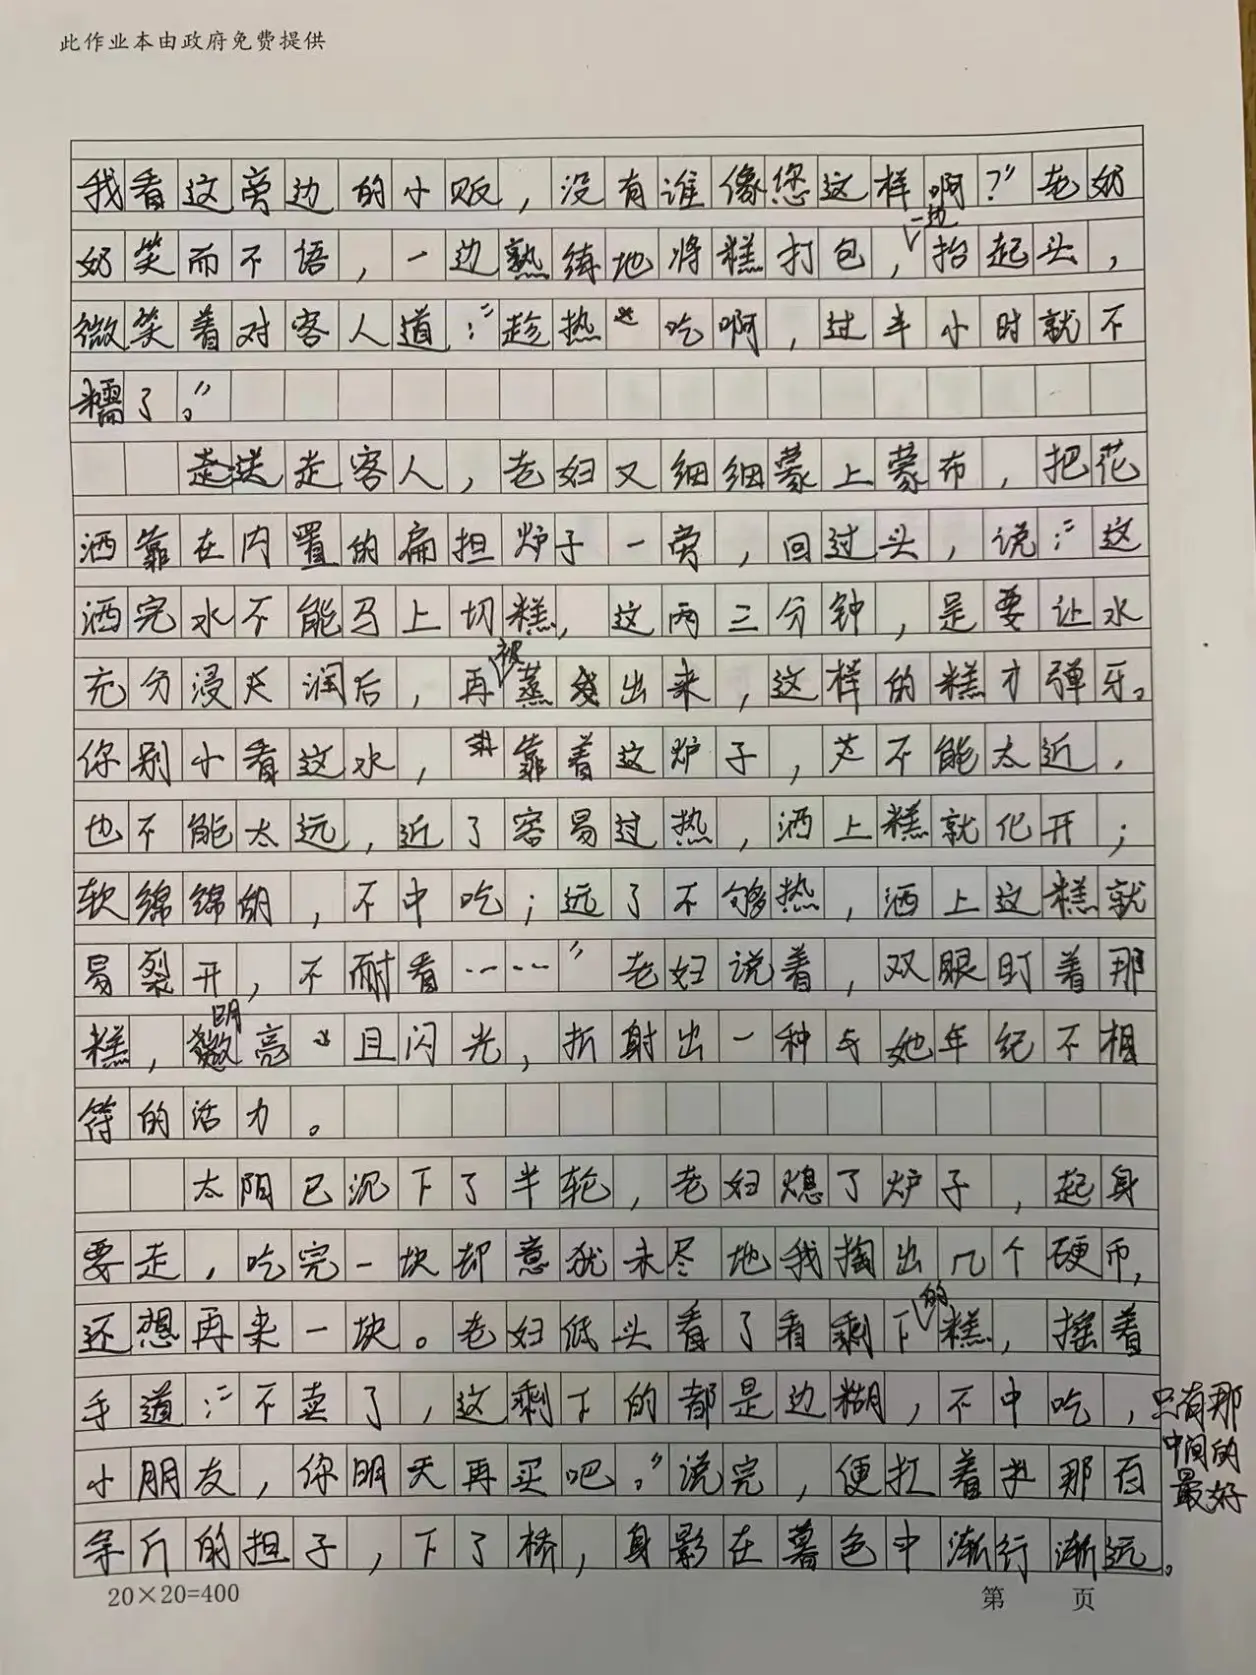 此作业本由政府免费提供
我看这旁边的小贩，没有谁像您这样啊？”老奶
奶笑而不语，一边熟练地将糕打包，一边抬起头，
微笑着对客人道：“趁热吃啊，过半小时就不
糯了。”
送走客人，老妇又细细蒙上蒙布，把花
洒靠在内置的扁担炉子一旁，回过头，说：“这
洒完水不能马上切糕，这两三分钟，是要让水
充分浸润后，再被蒸出来，这样的糕才弹牙。
你别小看这水，靠着这炉子，不能太近，
也不能太远，近了容易过热，洒上糕就化开；
软绵绵的，不中吃；远了不够热，洒上这糕就
易裂开，不耐看……”老妇说着，双眼盯着那
糕，明亮且闪光，折射出一种与她年纪不相
符的活力。
太阳已沉下了半轮，老妇熄了炉子，起身
要走，吃完一块却意犹未尽地我掏出几个硬币，
还想再来一块。老妇低头看了看剩下的糕，摇着
手道：“不卖了，这剩下的都是边糊，不中吃，只有那中间的最好
小朋友，你明天再买吧。”说完，便扛着那百
余斤的担子，下了桥，身影在暮色中渐行渐远。
20×20=400
第 页